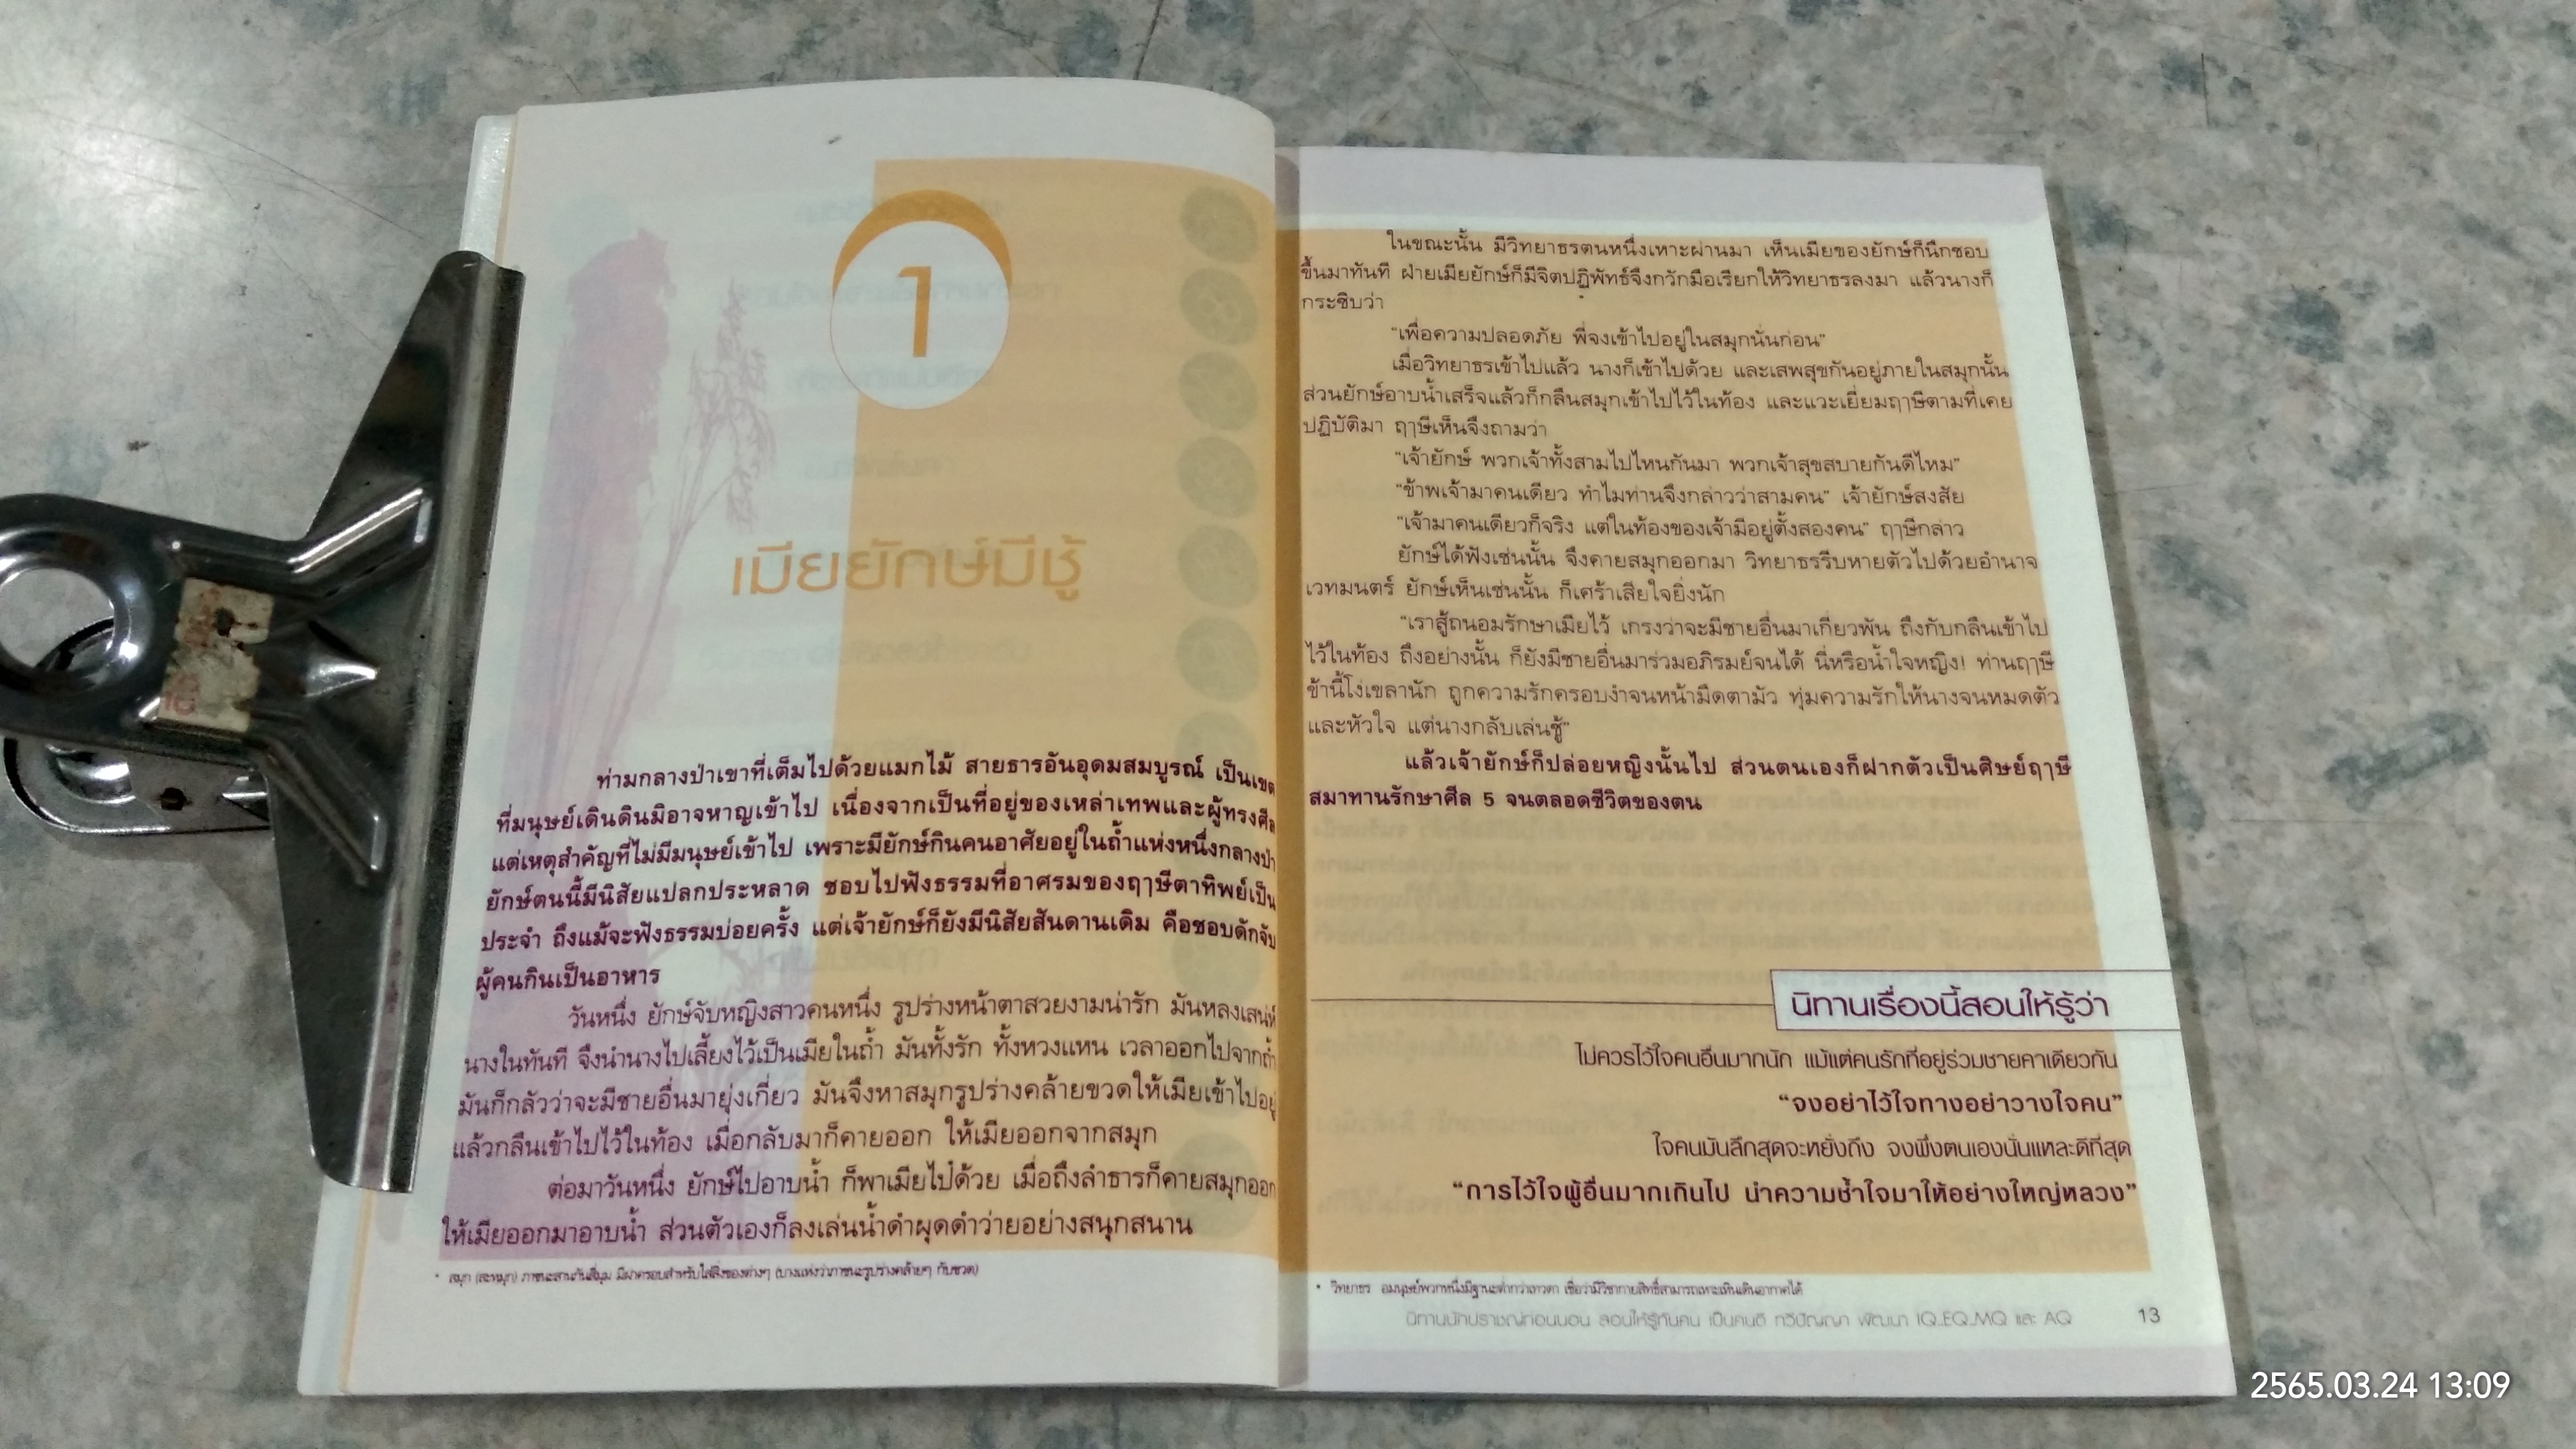 1
เมียยักษ์มีชู้
ท่ามกลางป่าเขาที่เต็มไปด้วยแมกไม้ สายธารอันอุดมสมบูรณ์ เป็นเขต
ที่มนุษย์เดินดินมิอาจหาญเข้าไป เนื่องจากเป็นที่อยู่ของเหล่าเทพและผู้ทรงศีล
แต่เหตุสำคัญที่ไม่มีมนุษย์เข้าไป เพราะมียักษ์กินคนอาศัยอยู่ในถ้ำแห่งหนึ่งกลางป่า
ยักษ์ตนนี้มีนิสัยแปลกประหลาด ชอบไปฟังธรรมที่อาศรมของฤๅษีตาทิพย์เป็น
ประจำ ถึงแม้จะฟังธรรมบ่อยครั้ง แต่เจ้ายักษ์ก็ยังมีนิสัยสันดานเดิม คือชอบดักจับ
ผู้คนกินเป็นอาหาร
วันหนึ่ง ยักษ์จับหญิงสาวคนหนึ่ง รูปร่างหน้าตาสวยงามน่ารัก มันหลงเสน่ห์
นางในทันที จึงนำนางไปเลี้ยงไว้เป็นเมียในถ้ำ มันทั้งรัก ทั้งหวงแหน เวลาออกไปจากถ้ำ
มันก็กลัวว่าจะมีชายอื่นมายุ่งเกี่ยว มันจึงหาสมุกรูปร่างคล้ายขวดให้เมียเข้าไปอยู่
แล้วกลืนเข้าไปไว้ในท้อง เมื่อกลับมาก็คายออก ให้เมียออกจากสมุก
ต่อมาวันหนึ่ง ยักษ์ไปอาบน้ำ ก็พาเมียไปด้วย เมื่อถึงลำธารก็คายสมุกออก
ให้เมียออกมาอาบน้ำ ส่วนตัวเองก็ลงเล่นน้ำดำผุดดำว่ายอย่างสนุกสนาน
* สมุก (สะหมุก) ภาชนะสานก้นสี่มุม มีฝาครอบสำหรับใส่สิ่งของต่างๆ (บางแห่งว่าภาชนะรูปร่างคล้ายๆ กับขวด)
ในขณะนั้น มีวิทยาธรตนหนึ่งเหาะผ่านมา เห็นเมียของยักษ์ก็นึกชอบ
ขึ้นมาทันที ฝ่ายเมียยักษ์ก็มีจิตปฏิพัทธ์จึงกวักมือเรียกให้วิทยาธรลงมา แล้วนางก็
กระซิบว่า
"เพื่อความปลอดภัย พี่จงเข้าไปอยู่ในสมุกนั่นก่อน"
เมื่อวิทยาธรเข้าไปแล้ว นางก็เข้าไปด้วย และเสพสุขกันอยู่ภายในสมุกนั้น
ส่วนยักษ์อาบน้ำเสร็จแล้วก็กลืนสมุกเข้าไปไว้ในท้อง และแวะเยี่ยมฤๅษีตามที่เคย
ปฏิบัติมา ฤๅษีเห็นจึงถามว่า
"เจ้ายักษ์ พวกเจ้าทั้งสามไปไหนกันมา พวกเจ้าสุขสบายกันดีไหม"
"ข้าพเจ้ามาคนเดียว ทำไมท่านจึงกล่าวว่าสามคน" เจ้ายักษ์สงสัย
"เจ้ามาคนเดียวก็จริง แต่ในท้องของเจ้ามีอยู่ตั้งสองคน" ฤๅษีกล่าว
ยักษ์ได้ฟังเช่นนั้น จึงคายสมุกออกมา วิทยาธรรีบหายตัวไปด้วยอำนาจ
เวทมนตร์ ยักษ์เห็นเช่นนั้น ก็เศร้าเสียใจยิ่งนัก
"เราสู้ถนอมรักษาเมียไว้ เกรงว่าจะมีชายอื่นมาเกี่ยวพัน ถึงกับกลืนเข้าไป
ไว้ในท้อง ถึงอย่างนั้น ก็ยังมีชายอื่นมาร่วมอภิรมย์จนได้ นี่หรือน้ำใจหญิง! ท่านฤๅษี
ข้านี้โง่เขลานัก ถูกความรักครอบงำจนหน้ามืดตามัว ทุ่มความรักให้นางจนหมดตัว
และหัวใจ แต่นางกลับเล่นชู้"
แล้วเจ้ายักษ์ก็ปล่อยหญิงนั้นไป ส่วนตนเองก็ฝากตัวเป็นศิษย์ฤๅษี
สมาทานรักษาศีล 5 จนตลอดชีวิตของตน
นิทานเรื่องนี้สอนให้รู้ว่า
ไม่ควรไว้ใจคนอื่นมากนัก แม้แต่คนรักที่อยู่ร่วมชายคาเดียวกัน
"จงอย่าไว้ใจทางอย่าวางใจคน"
ใจคนมันลึกสุดจะหยั่งถึง จงพึ่งตนเองนั่นแหละดีที่สุด
"การไว้ใจผู้อื่นมากเกินไป นำความช้ำใจมาให้อย่างใหญ่หลวง"
* วิทยาธร อมนุษย์พวกหนึ่งมีฐานะต่ำกว่าเทวดา เชื่อว่ามีวิชากายสิทธิ์สามารถเหาะเหินเดินอากาศได้
นิทานนักปราชญ์ก่อนนอน สอนให้รู้ทันคน เป็นคนดี ทวีปัญญา พัฒนา IQ..EQ..MQ และ AQ 13
2565.03.24 13:09